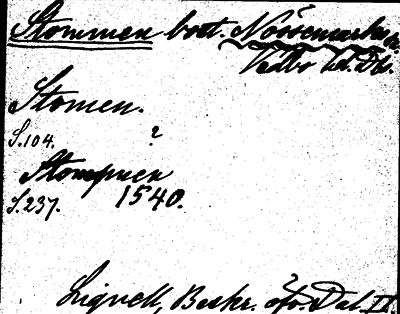 Stommen bost. Nössemarks sn.
Vedbo hd. Dls.
Stomen.
S. 104. ?
Stompnen
S. 237. 1540.
Lignell, Beskr. öfv. Dal. II